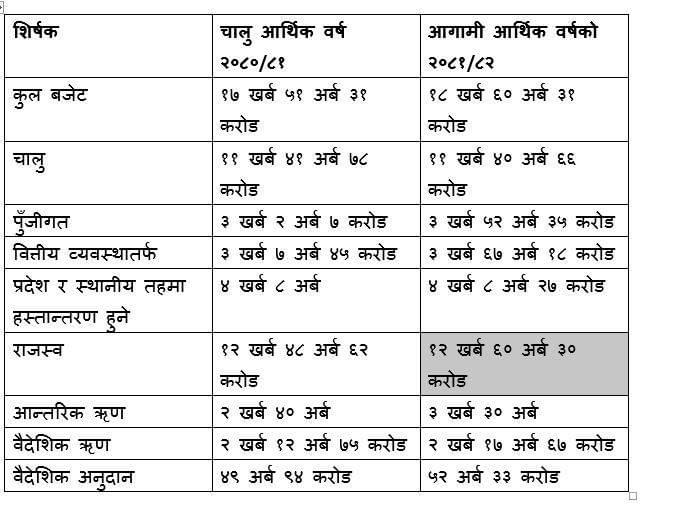 शिर्षक
चालु आर्थिक वर्ष
२०८०/८१
आगामी आर्थिक वर्षको
२०८१/८२
कुल बजेट
१७ खर्ब ५१ अर्ब ३१
करोड
१८ खर्ब ६० अर्ब ३१
करोड
चालु
११ खर्ब ४१ अर्ब ७८
करोड
११ खर्ब ४० अर्ब ६६
करोड
पुँजीगत
३ खर्ब २ अर्ब ७ करोड
३ खर्ब ५२ अर्ब ३५ करोड
वित्तीय व्यवस्थातर्फ
३ खर्ब ७ अर्ब ४५ करोड
३ खर्ब ६७ अर्ब १८ करोड
प्रदेश र स्थानीय तहमा
हस्तान्तरण हुने
४ खर्ब ८ अर्ब
४ खर्ब ८ अर्ब २७ करोड
राजस्व
१२ खर्ब ४८ अर्ब ६२
करोड
१२ खर्ब ६० अर्ब ३०
करोड
आन्तरिक ऋण
२ खर्ब ४० अर्ब
३ खर्ब ३० अर्ब
वैदेशिक ऋण
२ खर्ब १२ अर्ब ७५ करोड
२ खर्ब १७ अर्ब ६७ करोड
वैदेशिक अनुदान
४९ अर्ब ९४ करोड
५२ अर्ब ३३ करोड